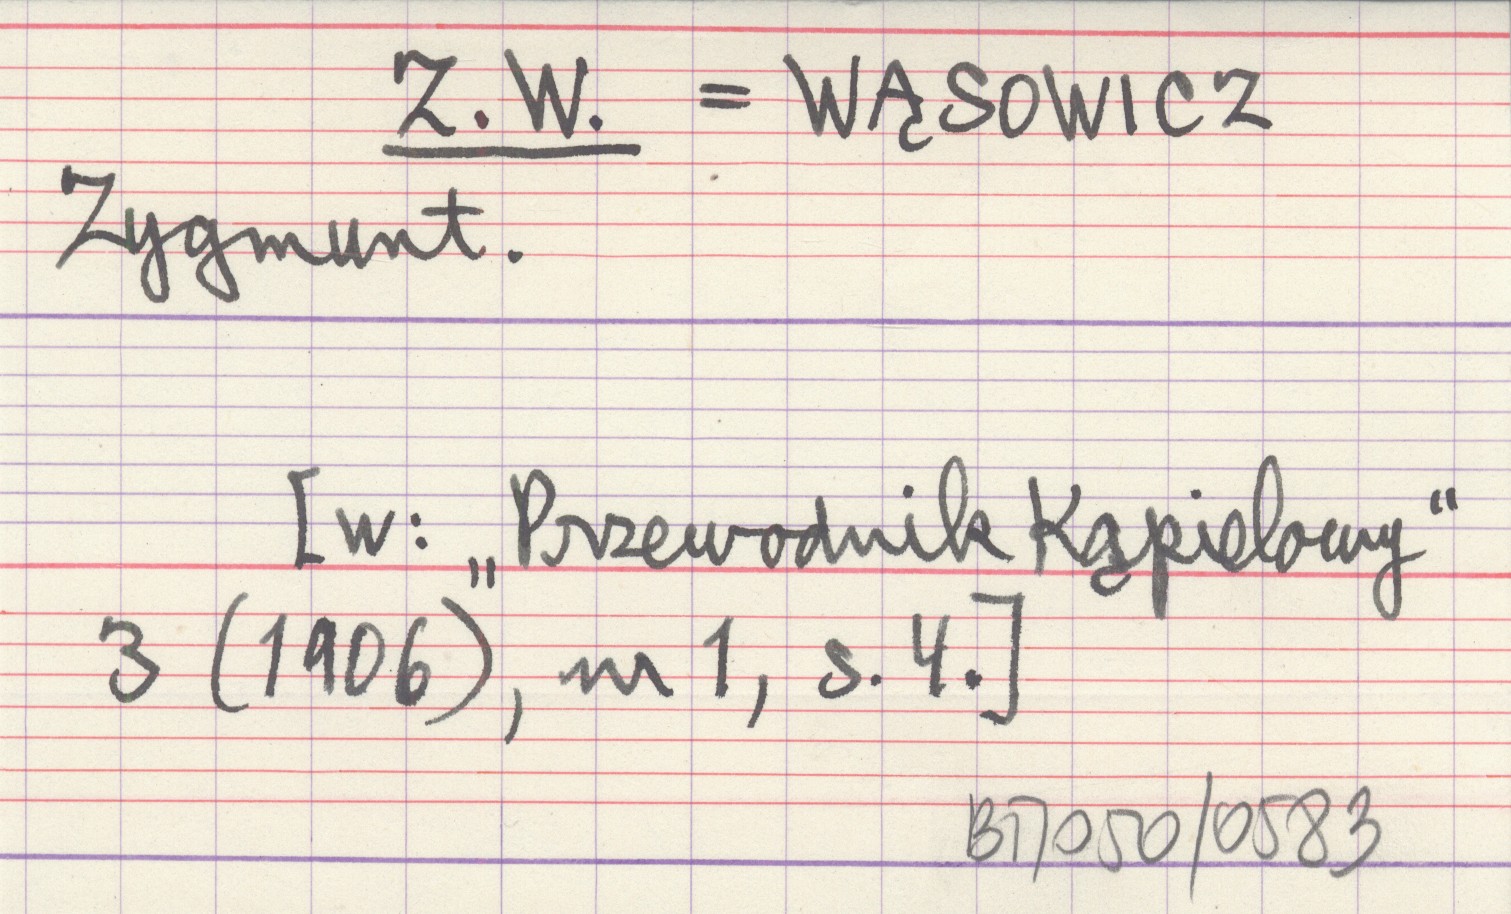 Z.W. = WĄSOWICZ
Zygmunt.
[w: „Przewodnik Kąpielowy"
3 (1906), nr 1, s. 4.]
BJ/050/0583